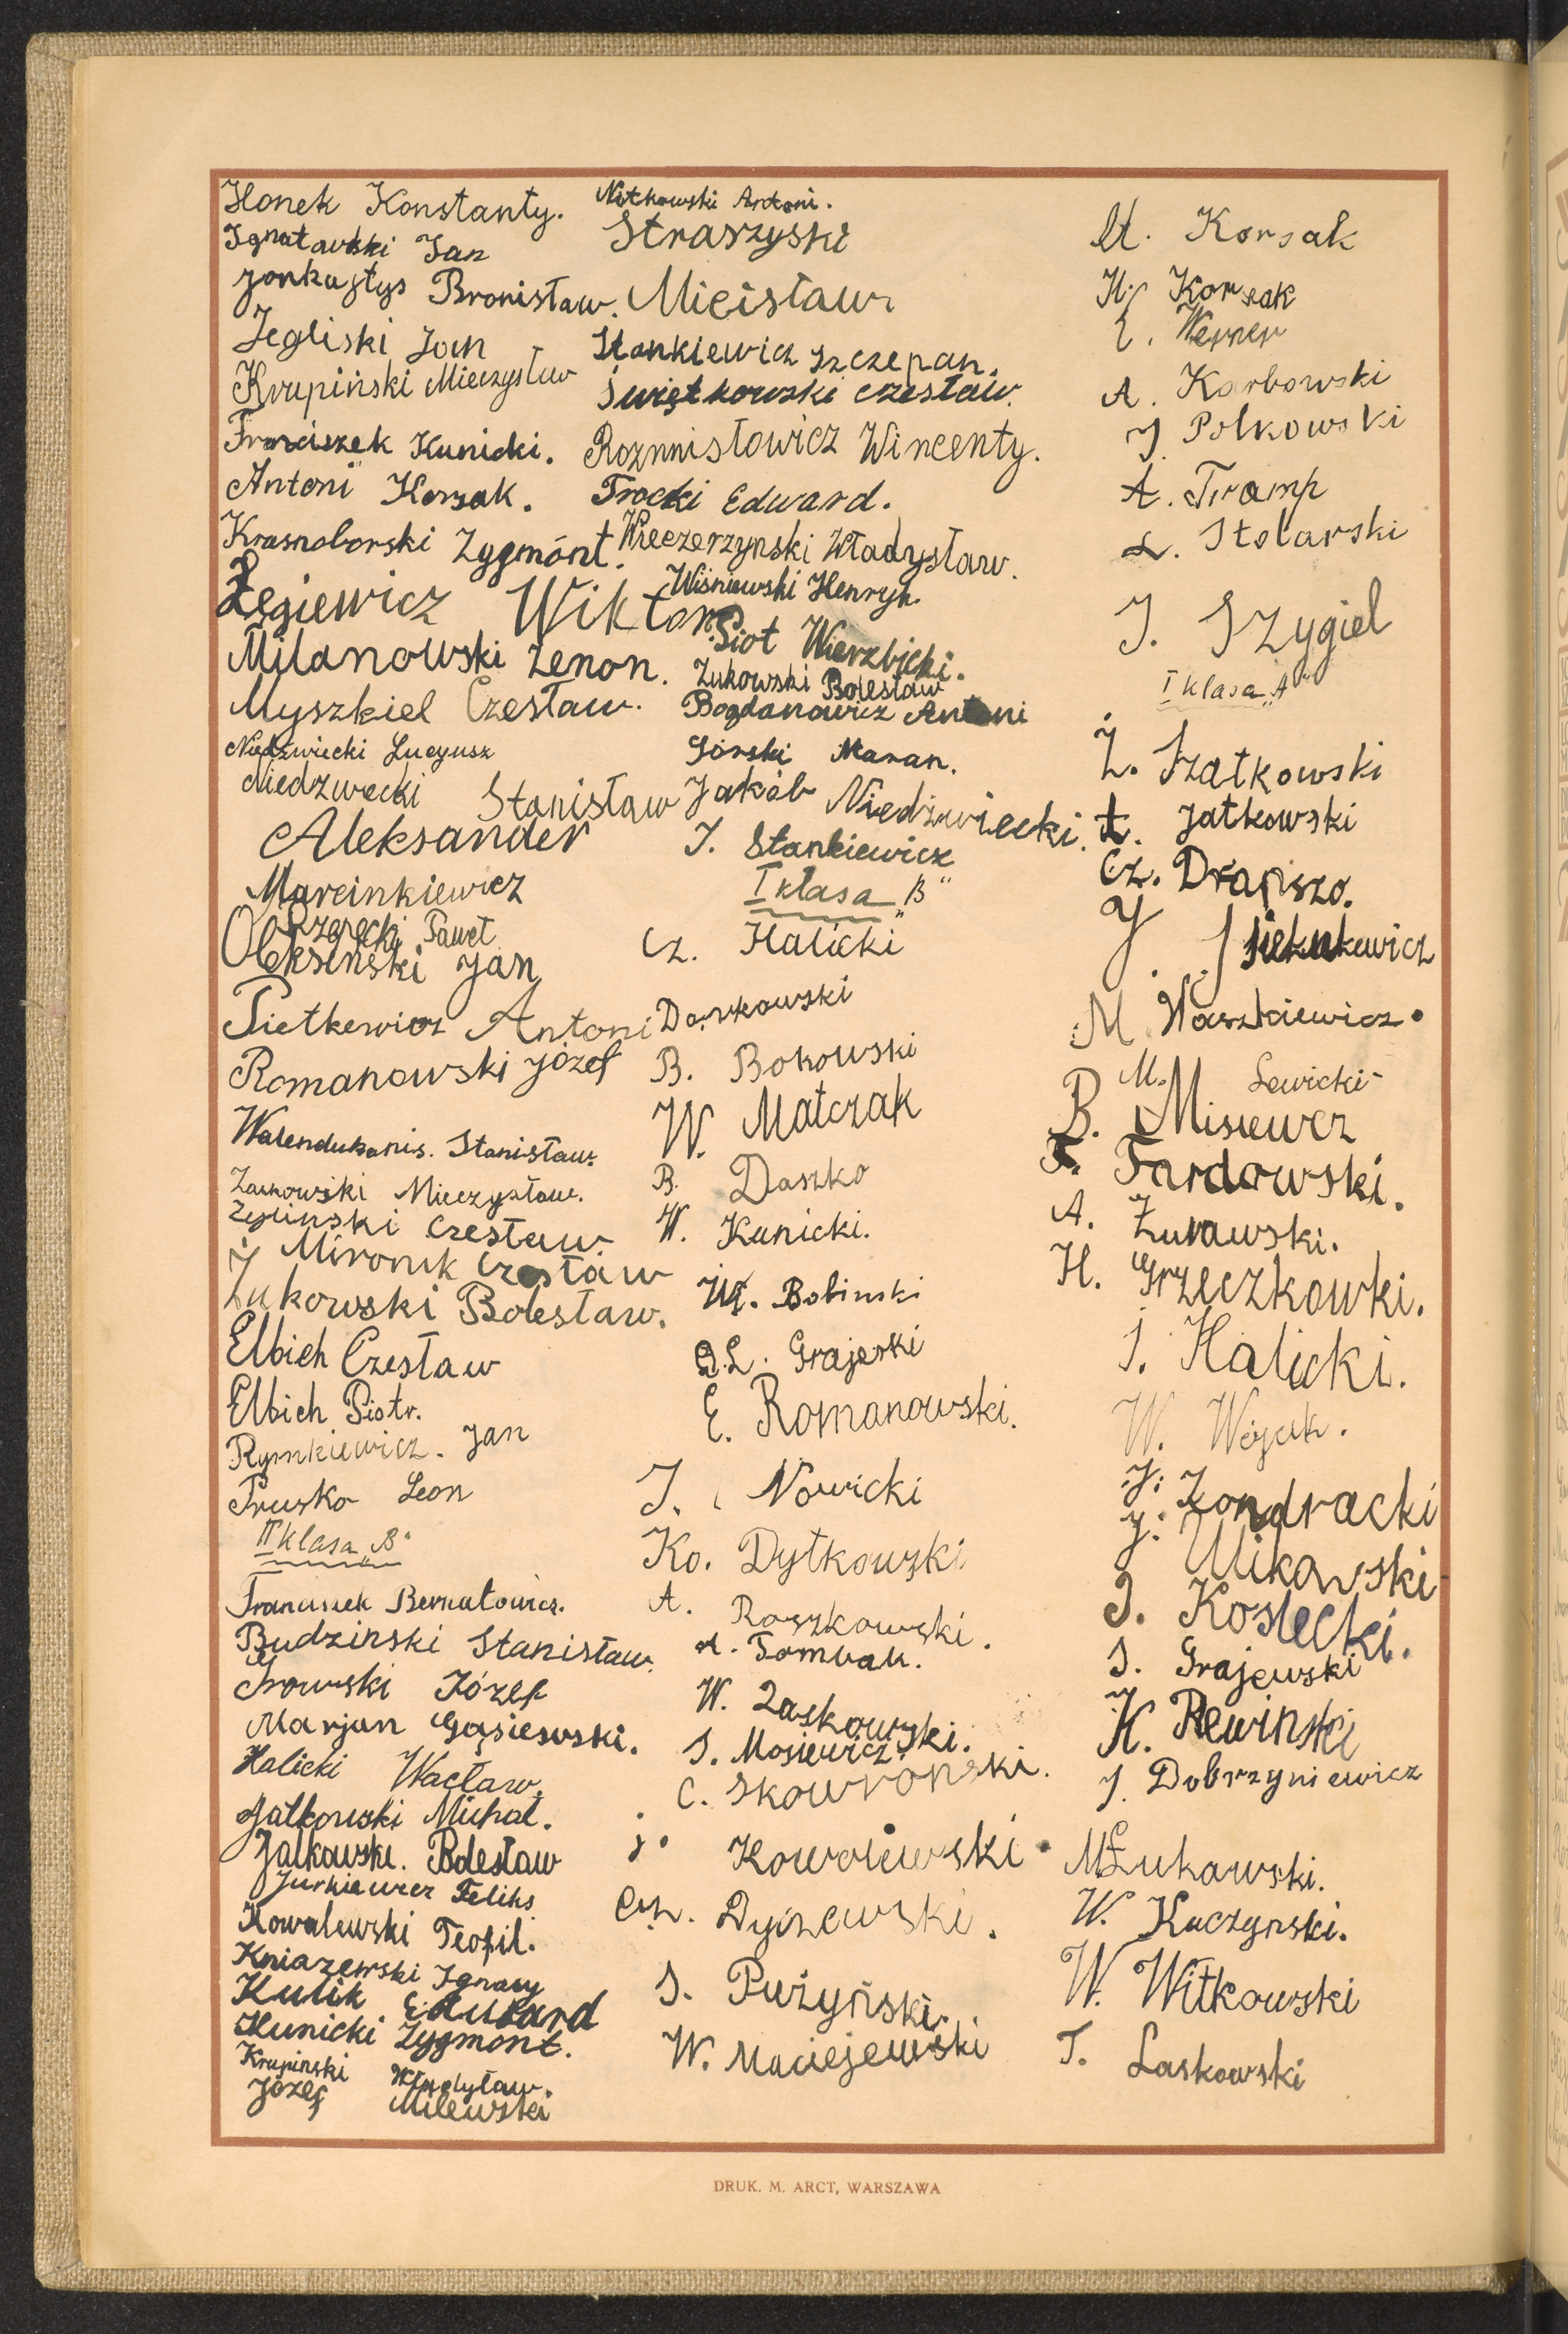 Honek Konstanty.
Ignatawski Jan
Jonkajtys Bronisław.
Jegliski Jan
Krupiński Mieczysław
Franciszek Kunicki.
Antoni Korsak.
Krasnoborski Zygmónt.
Łęgiewicz Wiktor
Milanowski Zenon.
Myszkiel Czesław.
Niedźwiecki Lucyusz
Niedzwecki Stanisław
Aleksander
Marcinkiewicz
Rzepecki Paweł
Oleksinski Jan
Pietkewicz Antoni
Romanowski Józef
Walendukanis. Stanisław.
Zackowski Mieczysław.
Zeylinski Czesław.
J Mironik Czesław
Żukowski Bolesław.
Elbich Czesław
Elbich Piotr.
Rymkiewicz. Jan
Prusko Leon
II klasa „B"
Franciszek Bernatowicz.
Budzinski Stanisław.
Józef
Marjan Gąsiewski.
Halicki Wacław.
Jatkowski Michał.
Jałkowski. Bolesław
Jurkiewicz Feliks
Kowalewski Teofil.
Kniazewski Ignacy
Kulik Edward
Kunicki Zygmont.
Krupinski Władysław.
Józef Milewski
Nitkowski Antoni.
Straszyski
Micisław
Stankiewicz Szczepan.
Świętkowski Czesław.
Rozmnisłowicz Wincenty.
Trocki Edward.
Wieczerzynski Władysław.
Wiśniewski Henryk.
Piot Wierzbicki.
Żukowski Bolesław
Bogdanowicz Antoni
Górski Maran.
Jakób Niedźwiecki.
J. Stankiewicz
I klasa „B"
Cz. Halicki
Darkowski
B. Bokowski
W. Matczak
B. Daszko
W. Kunicki.
Wł. Bobinski
L. Grajeski
E. Romanowski.
J. Nowicki
Ko. Dytkowski
A. Roszkowski.
A. Tombak.
W. Laskowski.
S. Mosiewicz.
C. Skowroński.
J. Kowalewski
Cz. Dyszewski.
S. Pużyński
W. Maciejewski
A. Korsak
H. Korsak
E. Werner
A. Karbowski
J. Polkowski
A. Tramp
L. Stolarski
J. Szygiel
I klasa „A"
Ż. Szatkowski
A. Jatkowski
Cz. Drapszo.
J. Sienkewicz
M. Waszkiewicz.
M. Lewicki
B. Misiewcz
F. Tardowski.
A. Żurawski.
H. Grzeczkowki.
J. Halicki.
W. Wojak.
J. Zondracki
J. Ulikowski
J. Koslecki.
S. Grajewski
K. Rewinski
J. Dobrzyniewicz
M Łukawski.
W. Kaczynski.
W. Witkowski
T. Laskowski
DRUK. M. ARCT, WARSZAWA